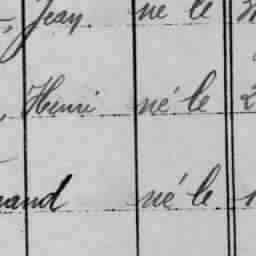 Jean né le
Henri né le 2
né le